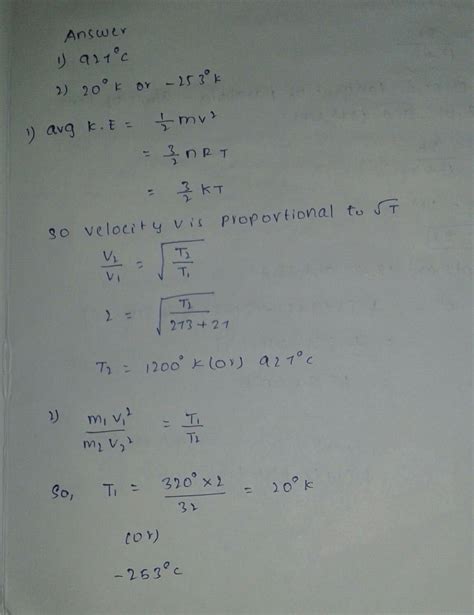 Answer
1) 927°C
2) 20°K or -253°K
1) avg K.E = 1/2 mv²
= 3/2 nRT
= 3/2 KT
so velocity v is proportional to √T
V₂/V₁ = √(T₂/T₁)
2 = √(T₂/(273+27))
T₂ = 1200°K (or) 927°C
2) m₁v₁²/m₂v₂² = T₁/T₂
So, T₁ = (320°×2)/32 = 20°K
(or)
-253°C